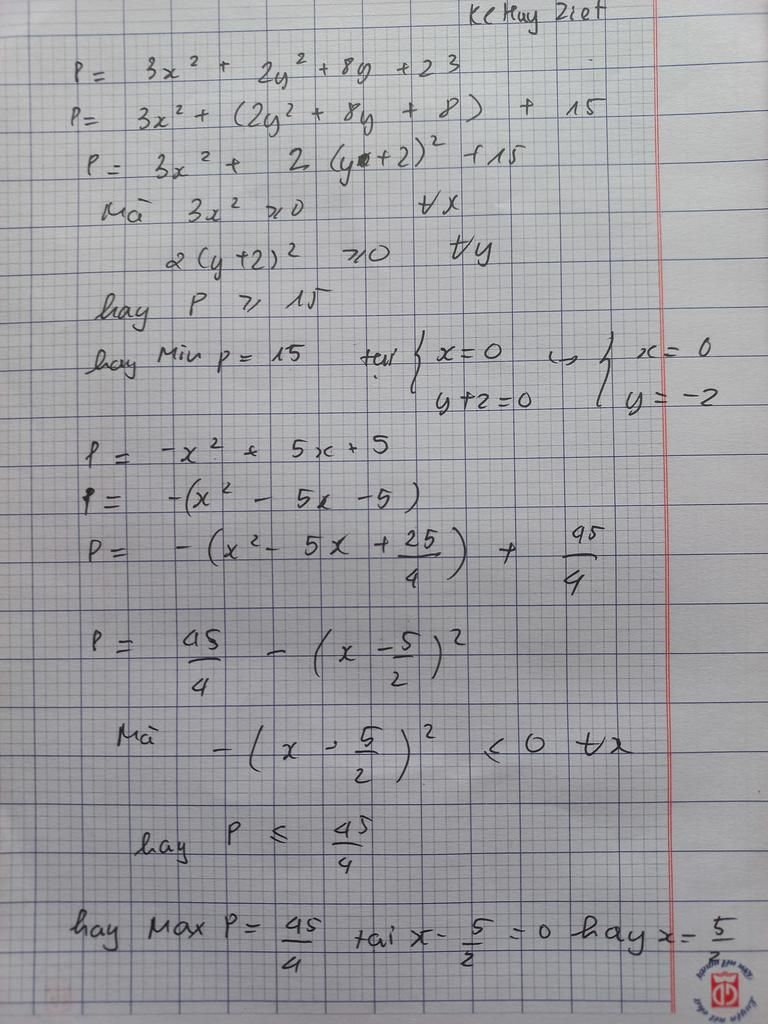 Kc Huy Ziet
P = 3x² + 2y² + 8y + 23
P = 3x² + (2y² + 8y + 8) + 15
P = 3x² + 2 (y + 2)² + 15
Mà 3x² ⩾ 0 ∀x
2(y+2)² ⩾ 0 ∀y
hay P ⩾ 15
hay Min P = 15 tại { x = 0 ↔ { x = 0
y + 2 = 0 y = -2
P = -x² + 5x + 5
P = -(x² - 5x - 5)
P = -(x² - 5x + 25/4) + 45/4
P = 45/4 - (x - 5/2)²
Mà -(x - 5/2)² ⩽ 0 ∀x
hay P ⩽ 45/4
hay Max P = 45/4 tai x - 5/2 = 0 hay x = 5/2